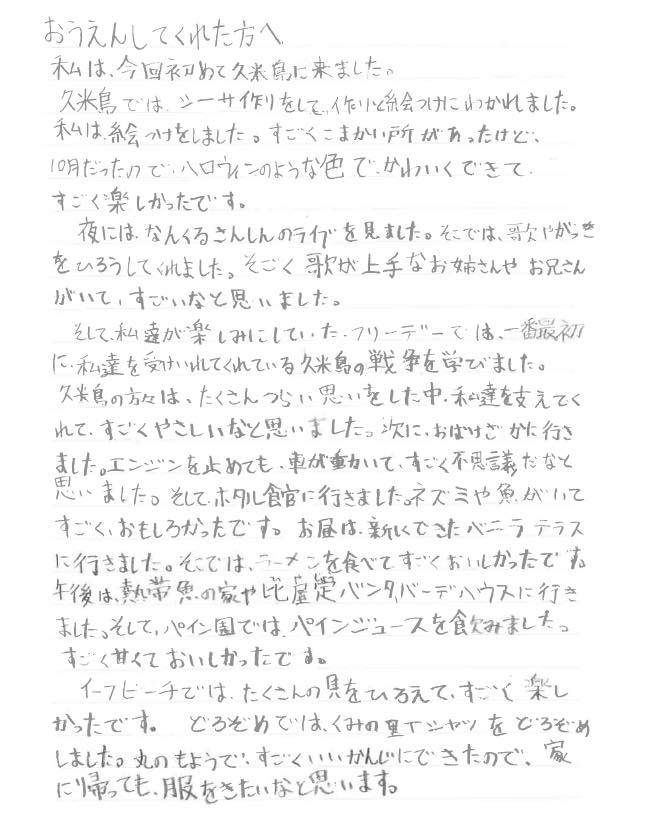 おうえんしてくれた方へ
私は、今回初めて久米島に来ました。
久米島では、シーサ作りをして、作りと絵つけにわかれました。
私は、絵つけをしました。すごくこまかい所があったけど、
10月だったので、ハロウィンのような色で、かわいくできて、
すごく楽しかったです。
夜には、なんくるさんしんのライブを見ました。そこでは、歌やがっき
をひろうしてくれました。そごく歌が上手なお姉さんやお兄さん
がいて、すごいなと思いました。
そして、私達が楽しみにしていた、フリーデーでは、一番最初
に、私達を受けいれてくれている久米島の戦争を学びました。
久米島の方々は、たくさんつらい思いをした中、私達を支えてく
れて、すごくやさしいなと思いました。次に、おばけざかた行き
ました。エンジンを止めても、車が動いて、すごく不思議だなと
思いました。そして、ホタル館に行きました。ネズミや魚がいて
すごく、おもしろかったです。お昼は、新しくできたバニラテラス
に行きました。そこでは、ラーメンを食べて、すごくおいしかったです。
午後は、熱帯魚の家や バンタ、バーデハウスに行き
ました。そして、パイン園では、パインジュースを飲みました。
すごく甘くておいしかったです。
イーフビーチでは、たくさんの貝をひろえて、すごく楽し
かったです。どろぞめでは、くみの里でシャツをどろぞめ
しました。丸のもようで、すごくいいかんじにできたので、家
に帰っても、服をきたいなと思います。